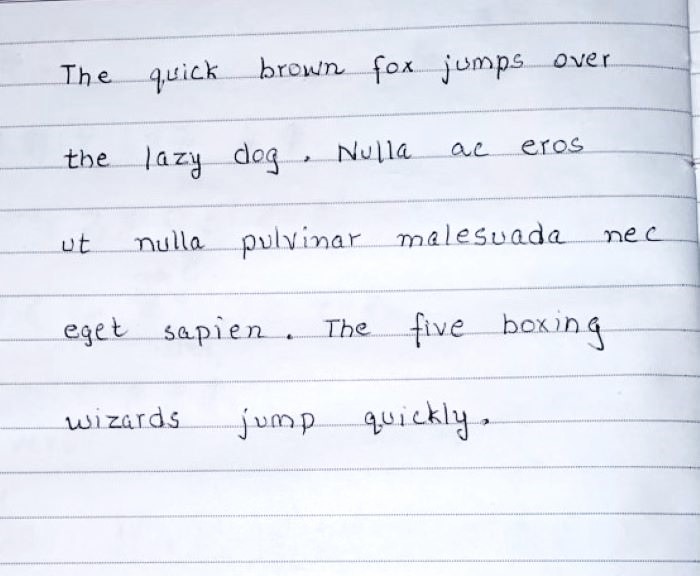 The quick brown fox jumps over
the lazy dog. Nulla ac eros
ut nulla pulvinar malesuada nec
eget sapien. The five boxing
wizards jump quickly.